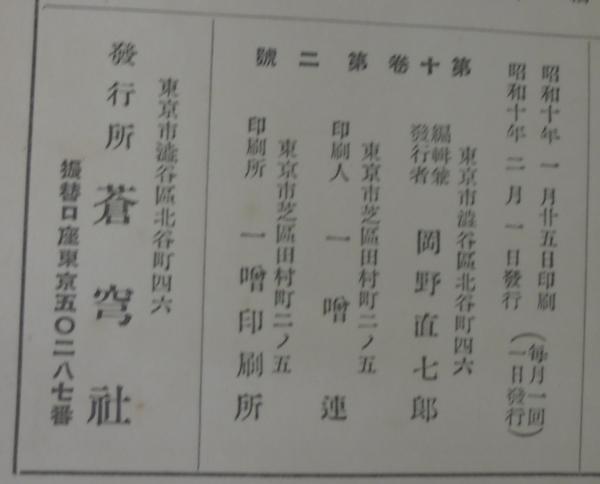 昭和十年 一月廿五日印刷
昭和十年 二月 一日發行
(每月一回一日發行)
第十卷第二號
東京市澁谷區北谷町四六
編輯兼發行者 岡野直七郎
東京市芝區田村町二ノ五
印刷人 一噌 連
東京市芝區田村町二ノ五
印刷所 一噌印刷所
東京市澁谷區北谷町四六
發行所 蒼穹社
振替口座東京五〇二八七番